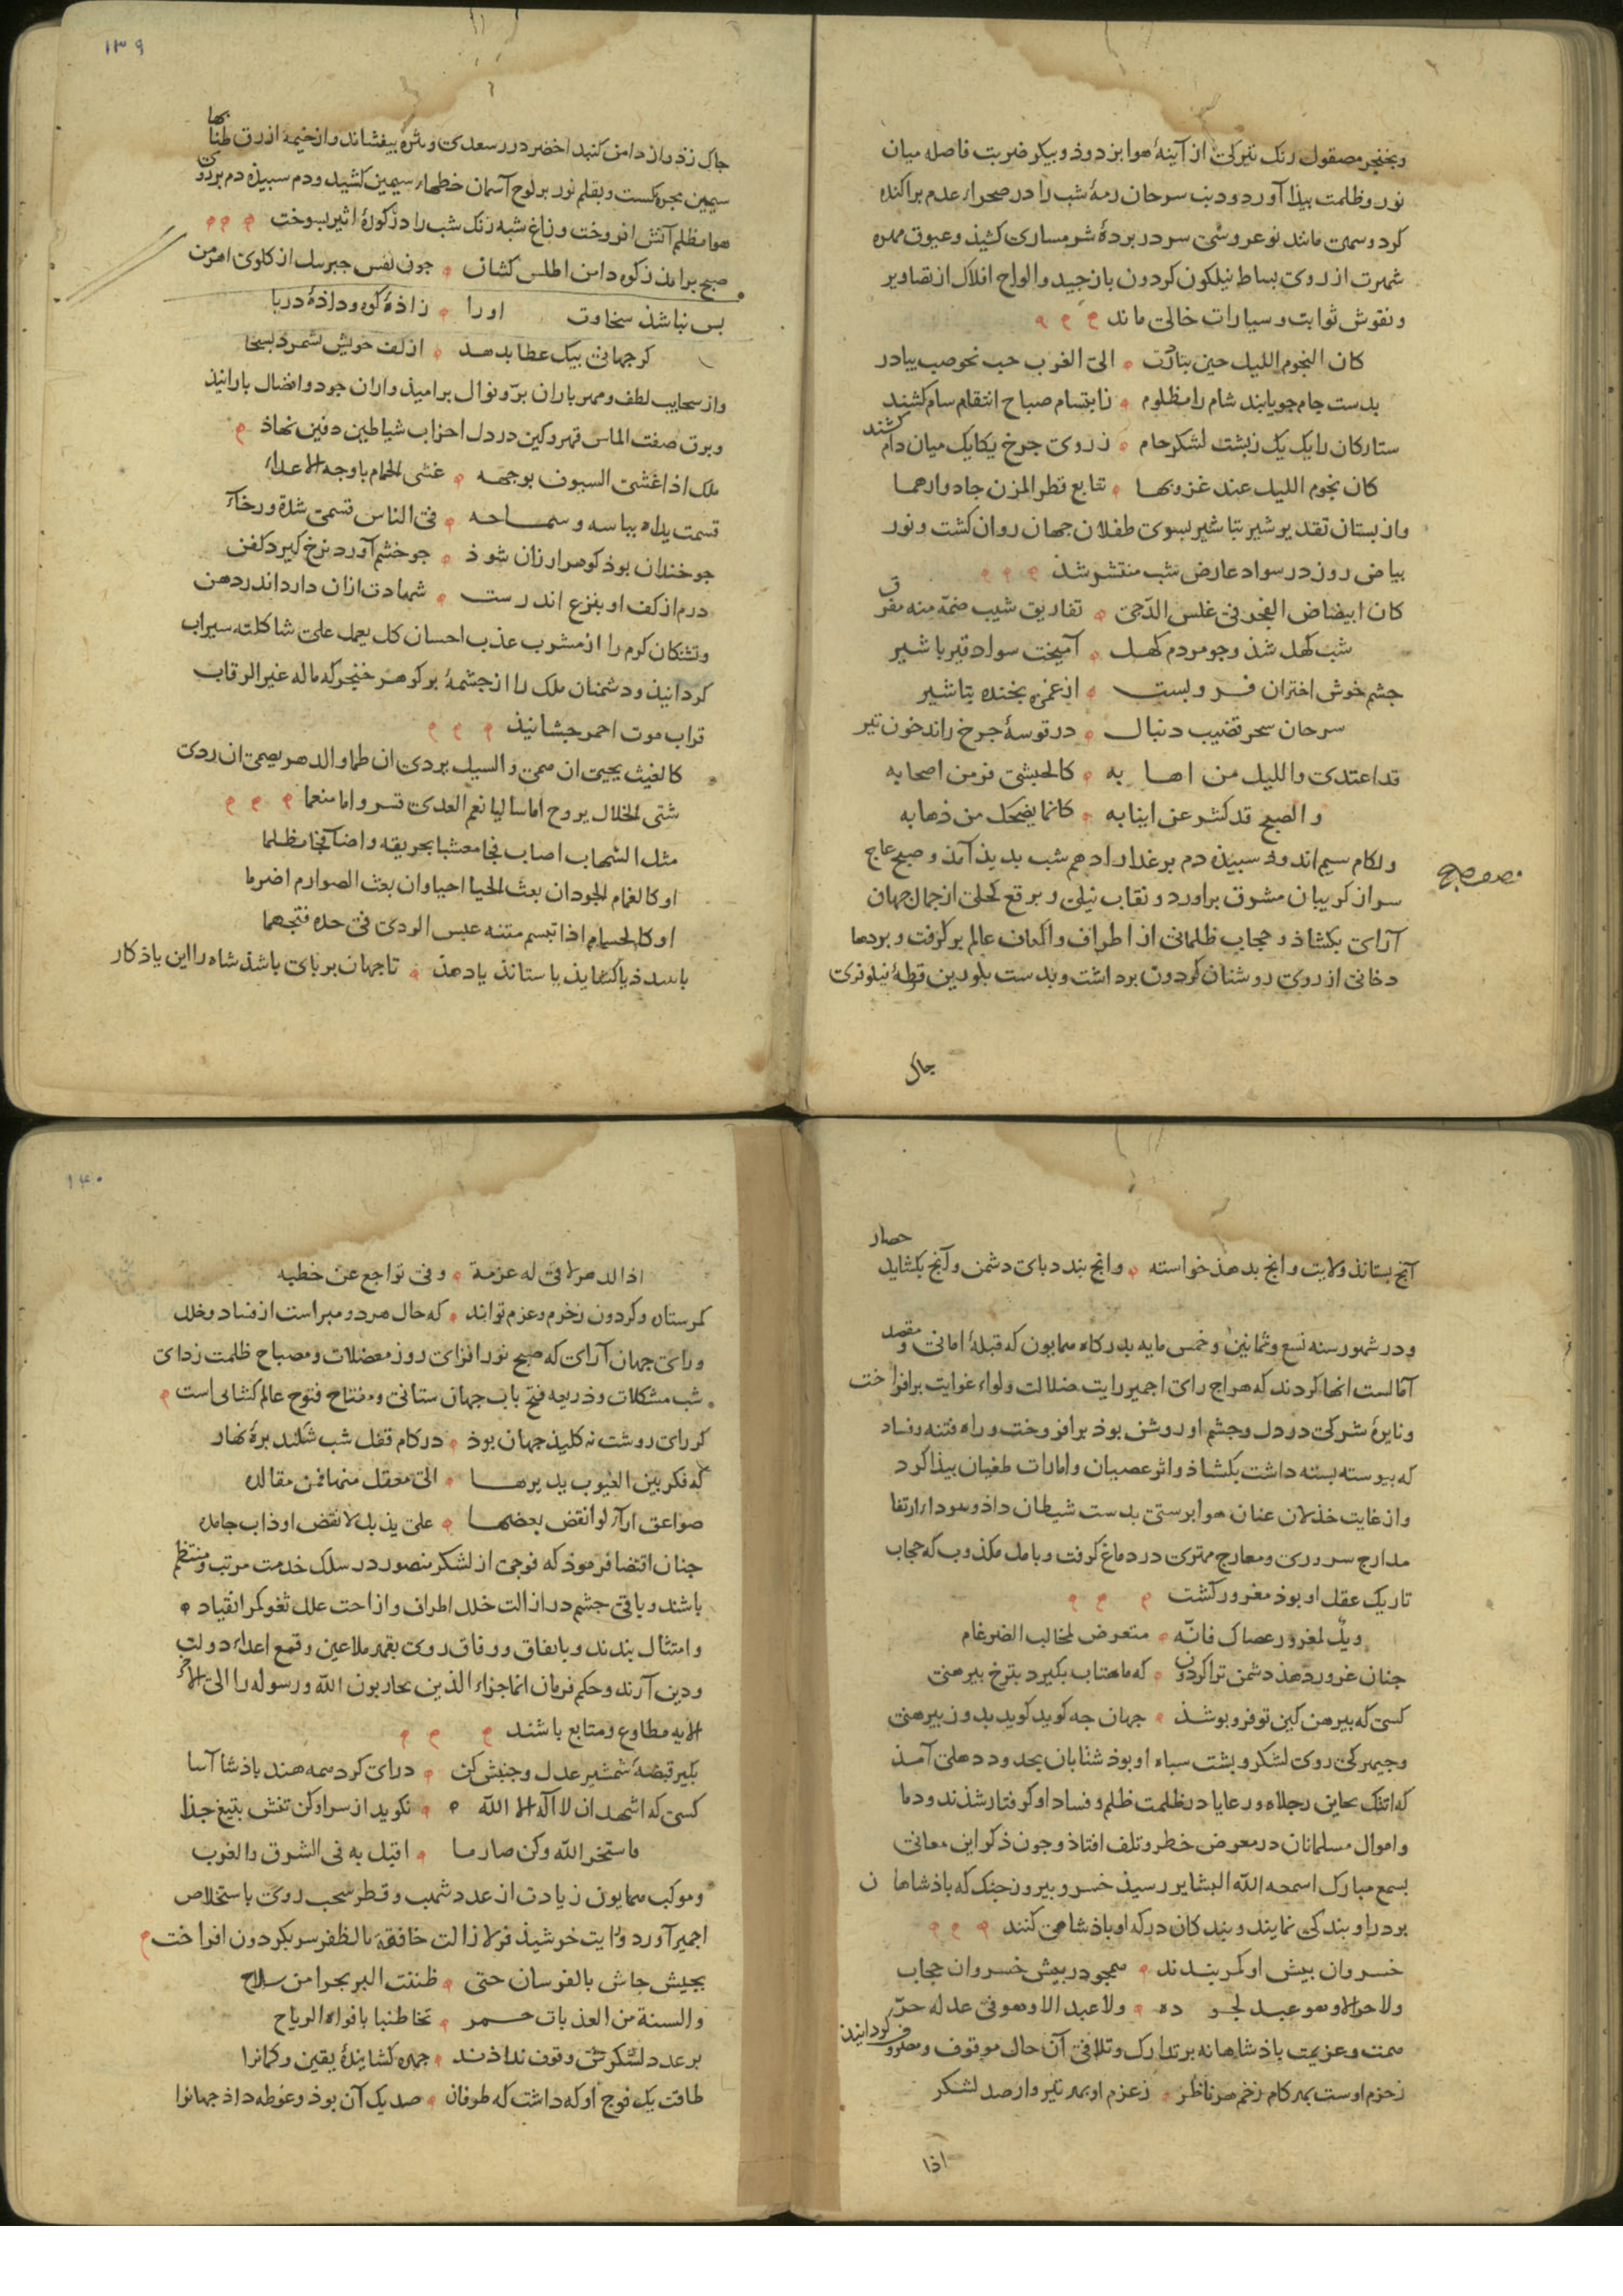 وبخنجر مصقول رنک تیرکی از آینهٔ هوا بزدود و بیکر ضربت فاصله میان
نور و ظلمت بیذا آورد و دنب سرحان رمهٔ شب را در صحراء عدم براکنده
کرد و سمن مانند نو عروسی سر در بردهٔ شرمساری کشیذ و عیوق مهره
شهرت از روی بساط نیلکون کردون باز جید و الواح افلاک از تصاویر
و نقوش ثوابت و سیارات خالی ماند
کان النجوم اللیل حین تبادرت الی الغرب حب نحو صب یبادر
بدست جام جو یابند شام را مظلوم ز ابتسام صباح انتقام سام کشند
ستارکان را یک یک ز بشت لشکر حام ز روی جرخ یکایک میان دام کشند
کان نجوم اللیل عند غروبها تتابع قطر المزن جاد وارهما
و از بستان تقدیر شیر تباشیر بسوی طفلان جهان روان کشت و نور
بیاض روز در سواد عارض شب منتشر شذ
کان ابیضاض الفجر فی غلس الدّجی تفاریق شیب ضمّه منه مفرق
شب کهل شذ و جو مردم کهل آمیخت سواد قیر با شیر
جشم خوش اختران فرو بست از غمزه بخنده تباشیر
سرحان سحر قضیب دنبال در قوسهٔ جرخ راند خون تیر
قد اعتدی و اللیل من اهابه کالحبشی فر من اصحابه
و الصبح قد کشر عن انیابه کانما یضحک من ذهابه
و لکام سیم اندود سبیذه دم بر غدار ادهم شب بدیذ آمذ و صبح عاج
سر از کریبان مشرق براورد و نقاب نیلی و برقع کحلی از جمال جهان
آرای بکشاذ و حجاب ظلمانی از اطراف و اکناف عالم بر کرفت و بردها
دخانی از روی روشنان کردون برداشت و بدست بلورین قرطهٔ نیلوفری
جاک
۱۳۹
جاک زذ و از دامن کنبد اخضر درر سعدی و نثره بیفشاند و از خیمهٔ ازرق طنابها
سیمین مجره بکست و بقلم نور بر لوح آسمان خطهاء سیمین کشید و دم سبیذه دم بر روی
هوا مظلم آتش افروخت و زاغ شبه رنک شب را در کورهٔ اثیر بسوخت
صبح برامد ز کوه دامن اطلس کشان جون نفس جبرئیل از کلوی اهرمن
بس نباشذ سخاوت اورا زاذهٔ کوه و داذهٔ دریا
کر جهانی بیک عطا بدهد از کف خویش نشمرد بسخا
و از سحایب لطف و مهر باران برّ و نوال برامیذ واران جود و افضال بارانیذ
و برق صفت الماس قهر و کین در دل احزاب شیاطین دفین نهاذ
ملک اذا غشی السیوف بوجهه غشی الحمام باوجه الاعداء
قسمت یداه بباسه و سماحه فی الناس قسمی شدة و رخاء
جو خندان بوذ کوهر ارزان شوذ جو خشم آورد نرخ کیرد کفن
درم از کف او بنزع اندرست شهادت ازان دارد اندر دهن
و تشنکان کرم را از مشرب عذب احسان کل یعمل علی شاکلته سیراب
کردانیذ و دشمنان ملک را از جشمهٔ بر کوهر خنجر که ماله غیر الرقاب
قراب موت احمر جشانیذ
کالغیث یحیی ان همی و السیل یردی ان طما و الدهر یصمی ان ردی
شتی الخلال یروح اما سالبا نعم العدی قسرا و اما منعما
مثل الشهاب اصاب فجا معشبا بحریقه و اضا فجا مظلما
او کالغمام الجود ان بعث الحیا احیا و ان بعث الصوارم اضرما
او کالحسام اذا تبسم متنه عبس الردی فی حده فتجهما
یا ببندذ یا کشایذ یا ستانذ یا دهذ تا جهان بر بای باشذ شاه را این یاذ کار
آنج بستانذ ولایت و انج بدهذ خواسته و انج بندد بای دشمن و آنج بکشاید حصار
و در شهور سنه تسع و ثمانین و خمس مایه بدرکاه همایون که قبلهٔ امانی و مقصد
آمالست انها کردند که هراج رای اجمیر رایت ضلالت و لواء غوایت برافراخت
و نایرهٔ شرکی در دل و جشم او روشن بوذ برافروخت و راه فتنه و فساد
که بیوسته بسته داشت بکشاذ و اثر عصیان و امارات طغیان بیذا کرد
و از غایت خذلان عنان هوا برستی بدست شیطان داذ و سوداء ارتقا
مدارج سروری و معارج مهتری در دماغ کرفت و بامل مکذوب که حجاب
تاریک عقل او بوذ مغرور کشت
ویل لمغرور عصاک فانّه متعرض لمخالب الضرغام
جنان غرور دهذ دشمن ترا کردون که ماهتاب بکیرد بترخ بیرهنی
کسی که بیرهن کین تو فرو بوشذ جهان جه کوید کوید بدوز بیرهنی
و جیهرکی روی لشکر و بشت سباه او بوذ شتابان بحدود دهلی آمذ
که اتنک بحاین رجلاه و رعایا در ظلمت ظلم و فساد او کرفتار شذند و دما
و اموال مسلمانان در معرض خطر و تلف افتاذ و جون ذکر این معانی
بسمع مبارک اسمعه الله البشایر رسیذ خسرو بیروز جنک که باذشاهان
بر در او بندکی نمایند و بندکان درکه او باذشاهی کنند
خسروان بیش او کمر بندند همجو در بیش خسروان حجاب
و لا حرّ الا و هو عبد لجوده و لا عبد الا و هو فی عدله حرّ
همت و عزیمت باذشاهانه بر تدارک و تلافی آن حال موقوف و مصروف کردانیذ
ز حزم اوست بهر کام زخم هر ناظر ز عزم او بهر تیر وار صد لشکر
اذا
۱۴۰
اذا الدهر لاقی له عزمة و فی تواجع عن خطبه
کمر ستان و کردون ز خرم و عزم تو اند که حال هر دو مبراست از فساد و خلل
و رای جهان آرای که صبح نور افزای روز معضلات و مصباح ظلمت زدای
شب مشکلات و ذریعه فتح باب جهان ستانی و مفتاح فتوح عالم کشائی است
کر رای روشنت نه کلیذ جهان بوذ در کام قفل شب شکند برهٔ نهار
له فکر بین الغیوب یدیرها الی معقل منها فمن مقالده
صواعق اراء لو انقض بعضها علی یذبل لانقض او ذاب جامده
جنان اقتضا فرموذ که فوجی از لشکر منصور در سلک خدمت مرتب و منتظم
باشند و باقی جشم در ازالت خلل اطراف و ازاحت علل ثغور کمر انقیاد
و امتثال بندند و باتفاق و وفاق روی بقهر ملاعین و قمع اعداء دولت
و دین آرند و حکم فرمان انما جزاء الذین یحاربون الله و رسوله را الی آخر
الایه مطاوع و متابع باشند
بکیر قبضهٔ شمشیر عدل و جنبش کن درای کرد همه هند باذشا آسا
کسی که اشهد ان لا اله الا الله نکوید از سر او کن تنش بتیغ جذا
فاستخر الله و کن صارما اقبل به فی الشرق و الغرب
و موکب همایون زیادت از عدد شهب و قطر سحب روی باستخلاص
اجمیر آورد و رایت خرشیذ فر لا زالت خافقة بالظفر سر بکردون افراخت
بجیش جاش بالفرسان حتی ظننت البر بحرا من سلاح
و السنة من العذبات حمر تخاطبنا بافواه الریاح
بر عدد لشکرش وقوف نداذند جهره کشایندهٔ یقین و کمانرا
طاقت یک فوج او که داشت که طوفان صد یک آن بوذ و غوطه داذ جهانرا